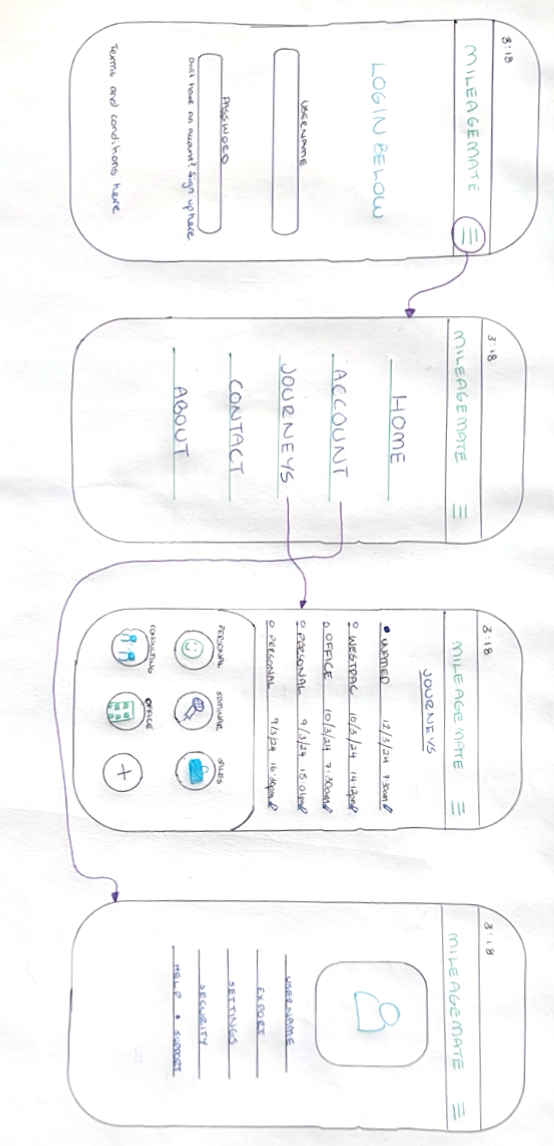 3:18
MILEAGEMATE
LOGIN BELOW
USERNAME
PASSWORD
Dont have an account? Sign up here
Terms and conditions here
3:18
MILEAGEMATE
HOME
ACCOUNT
JOURNEYS
CONTACT
ABOUT
3:18
MILEAGEMATE
JOURNEYS
UNAMED 12/3/24 7:30am
WESTPAC 10/3/24 14:12pm
OFFICE 10/3/24 7:30am
PERSONAL 9/3/24 15:01pm
PERSONAL 9/3/24 16:30pm
PERSONAL SEMINAR SALES
CONSULTING OFFICE +
3:18
MILEAGEMATE
USERNAME
EXPORT
SETTINGS
SECURITY
HELP & SUPPORT